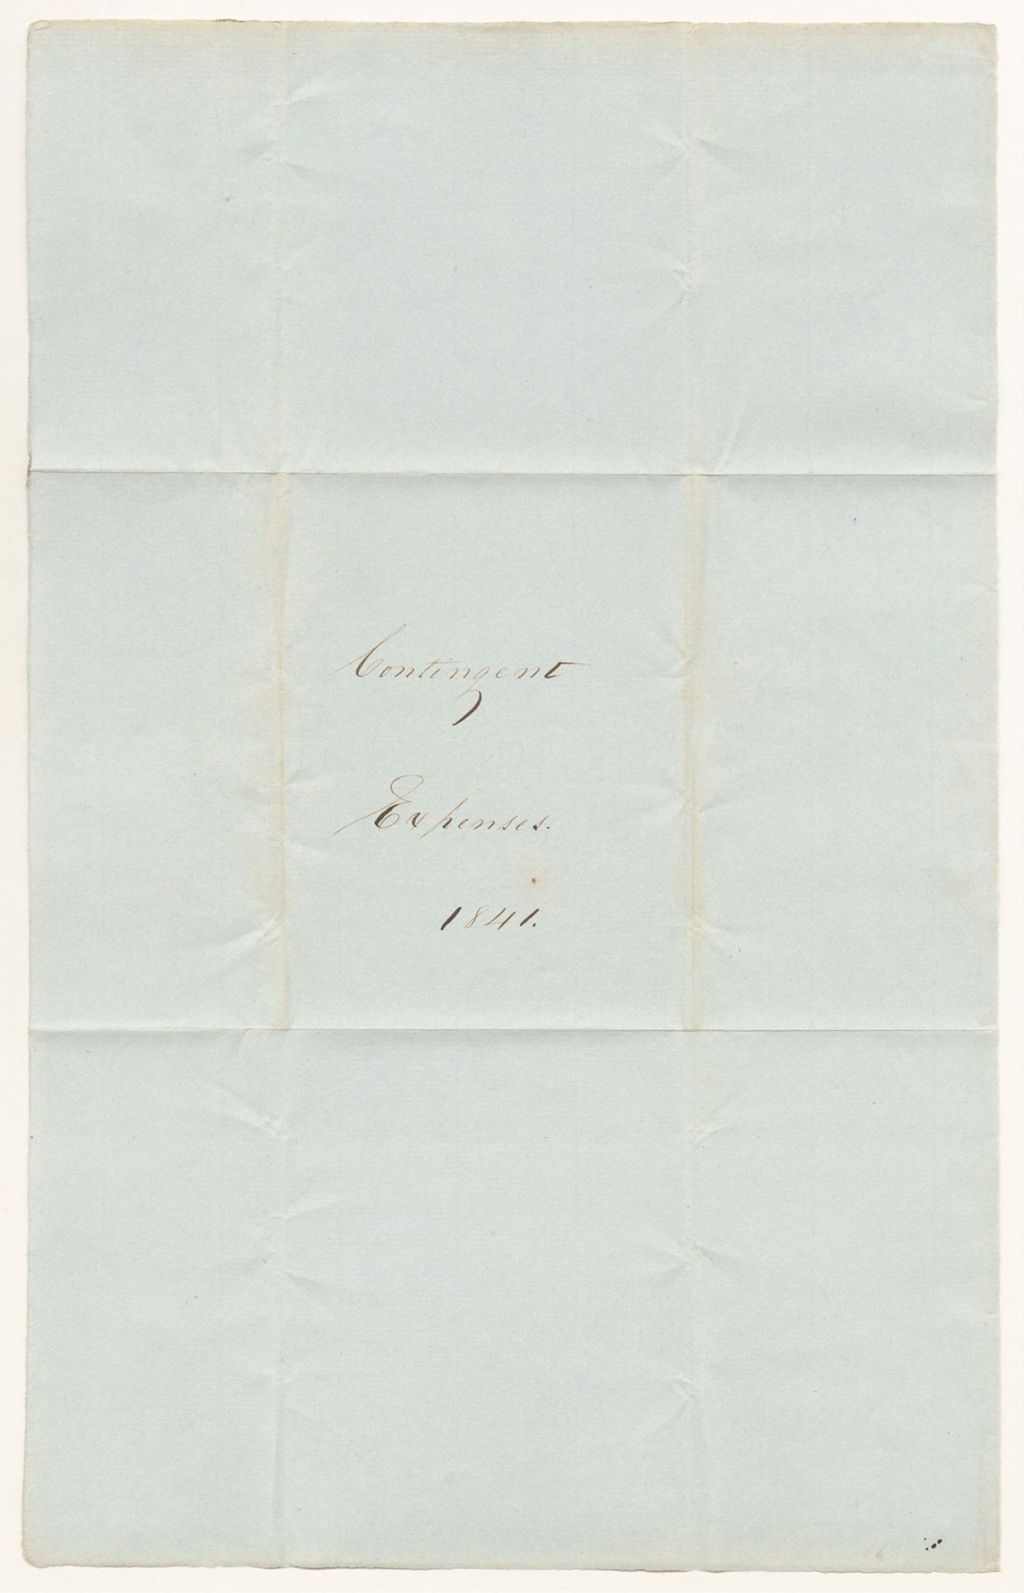 Contingent
Expenses.
1841.